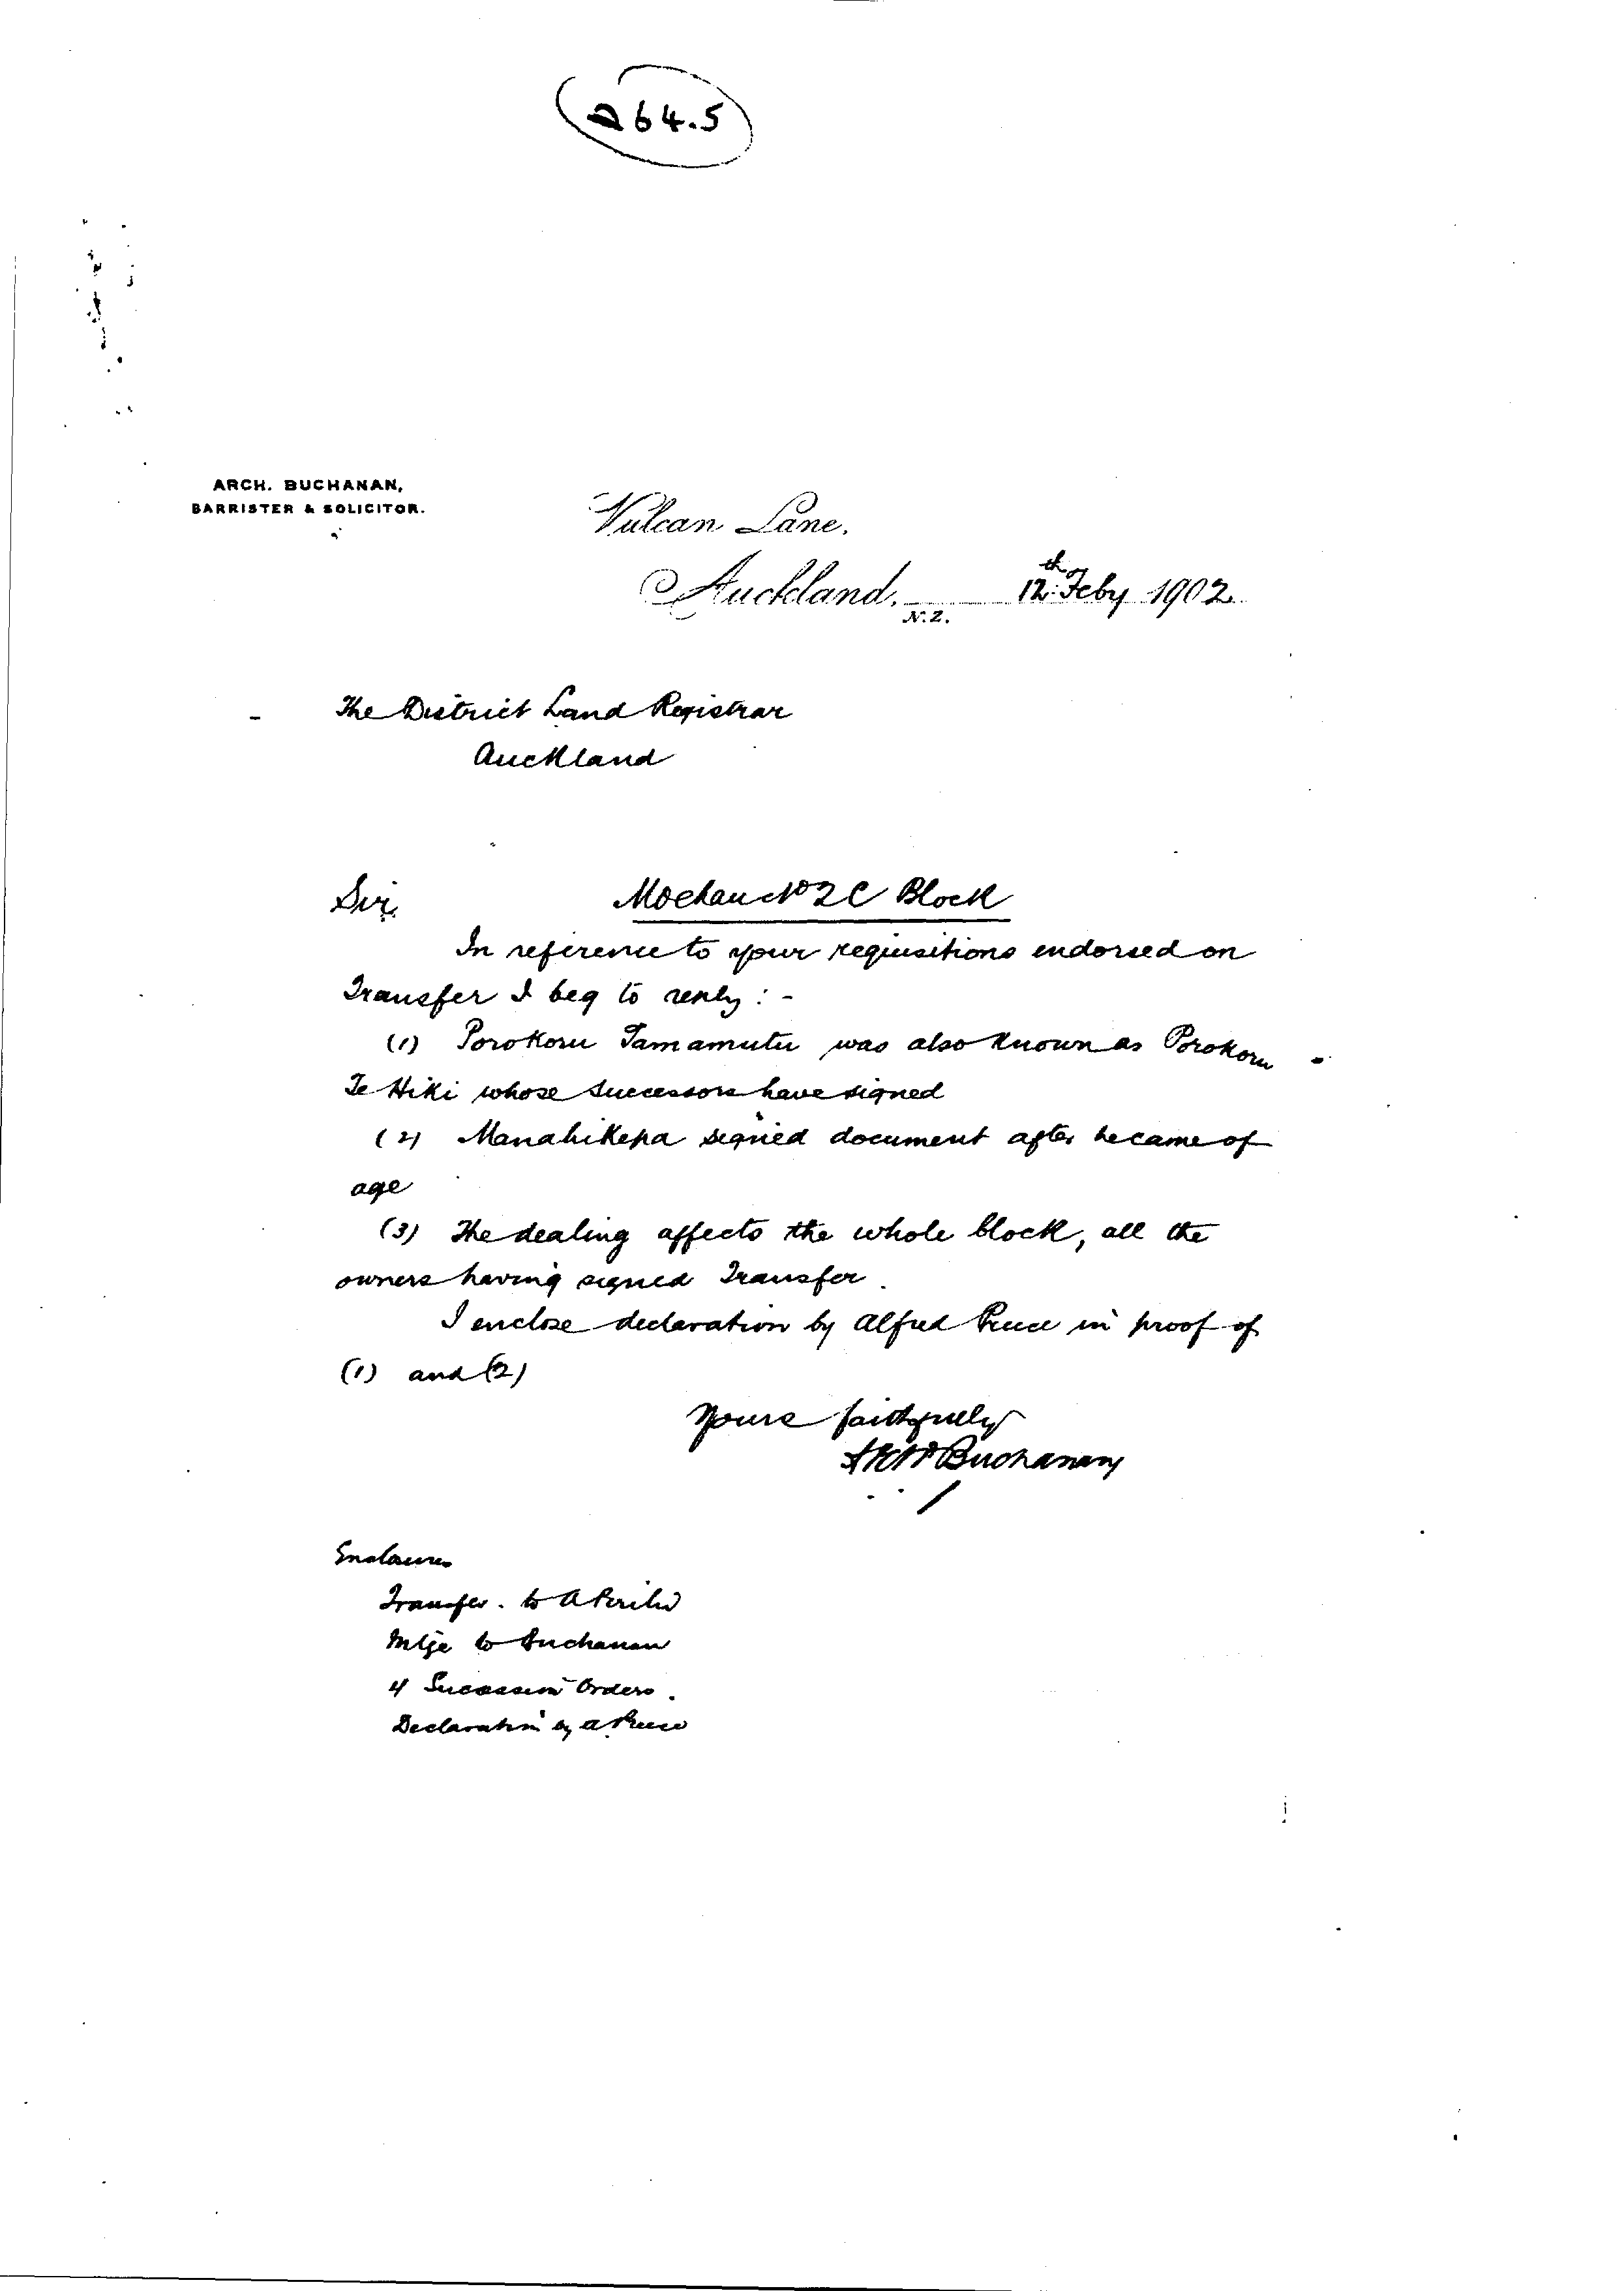 264.5
ARCH. BUCHANAN,
BARRISTER & SOLICITOR.
Vulcan Lane.
Auckland, N.Z. 12th Feby 1902
The District Land Registrar
Auckland
Sir, Moehau No 2C Block
In reference to your requisitions endorsed on
Transfer I beg to reply :-
(1) Porokoru Tamamutu was also known as Porokoru
Te Hiki whose successors have signed
(2) Manahi Kepa signed document after he came of
age
(3) The dealing affects the whole block, all the
owners having signed Transfer.
I enclose declaration by Alfred in proof of
(1) and (2)
Yours faithfully
Buchanan
Enclosures
Transfer. to A
Mtge to Buchanan
4 Succession Orders.
Declaration by A